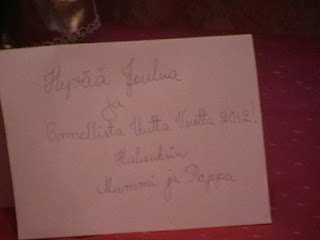 Hyvää Joulua
ja
Onnellista Uutta Vuotta 2012!
Halauksin
Mummi ja Pappa